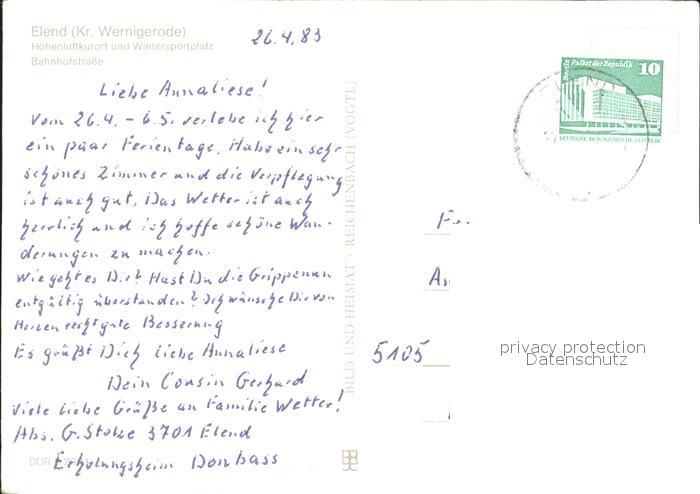 Elend (Kr. Wernigerode)
Höhenluftkurort und Wintersportplatz
Bahnhofstraße
26.4.83
Liebe Annaliese!
Vom 26.4. - 6.5. verlebe ich hier
ein paar Ferientage. Habe ein sehr
schönes Zimmer und die Verpflegung
ist auch gut. Das Wetter ist auch
herrlich und ich hoffe schöne Wan-
derungen zu machen.
Wie geht es Dir? Hast Du die Grippe nun
entgültig überstanden? Ich wünsche Dir von
Herzen recht gute Besserung
Es grüßt Dich liebe Annaliese
Dein Cousin Gerhard
Viele liebe Grüße an Familie Wetter!
Abs. G. Stolze 3701 Elend
Erholungsheim Donbass
DDR
BILD UND HEIMAT · REICHENBACH (VOGTL)
Berlin Palast der Republik 10
DEUTSCHE DEMOKRATISCHE REPUBLIK
5105
privacy protection
Datenschutz